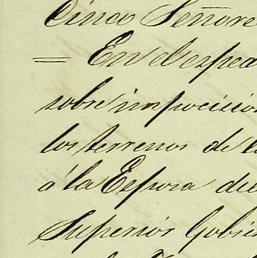 Cinco Señore
= En el expea
sobre imposicion
los terrenos de l
á la Espora de
Superior Gobie